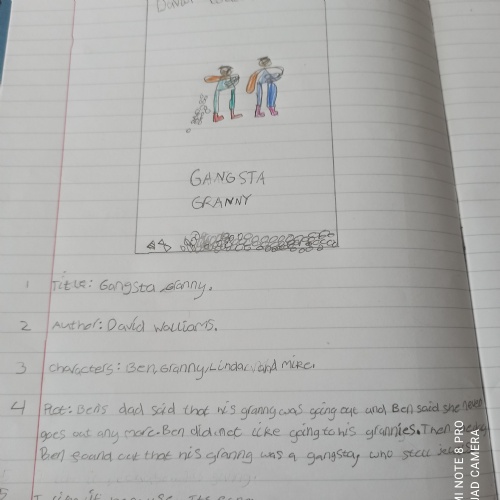 David
GANGSTA
GRANNY
1 Title: Gangsta Granny.
2 Author: David Walliams.
3 Characters: Ben, Granny, Linda, and Mike.
4 Plot: Ben's dad said that his granny was going out and Ben said she never
goes out any more. Ben did not like going to his grannies. Then
Ben found out that his granny was a gangsta, who
5 I
MI NOTE 8 PRO
UAD CAMERA